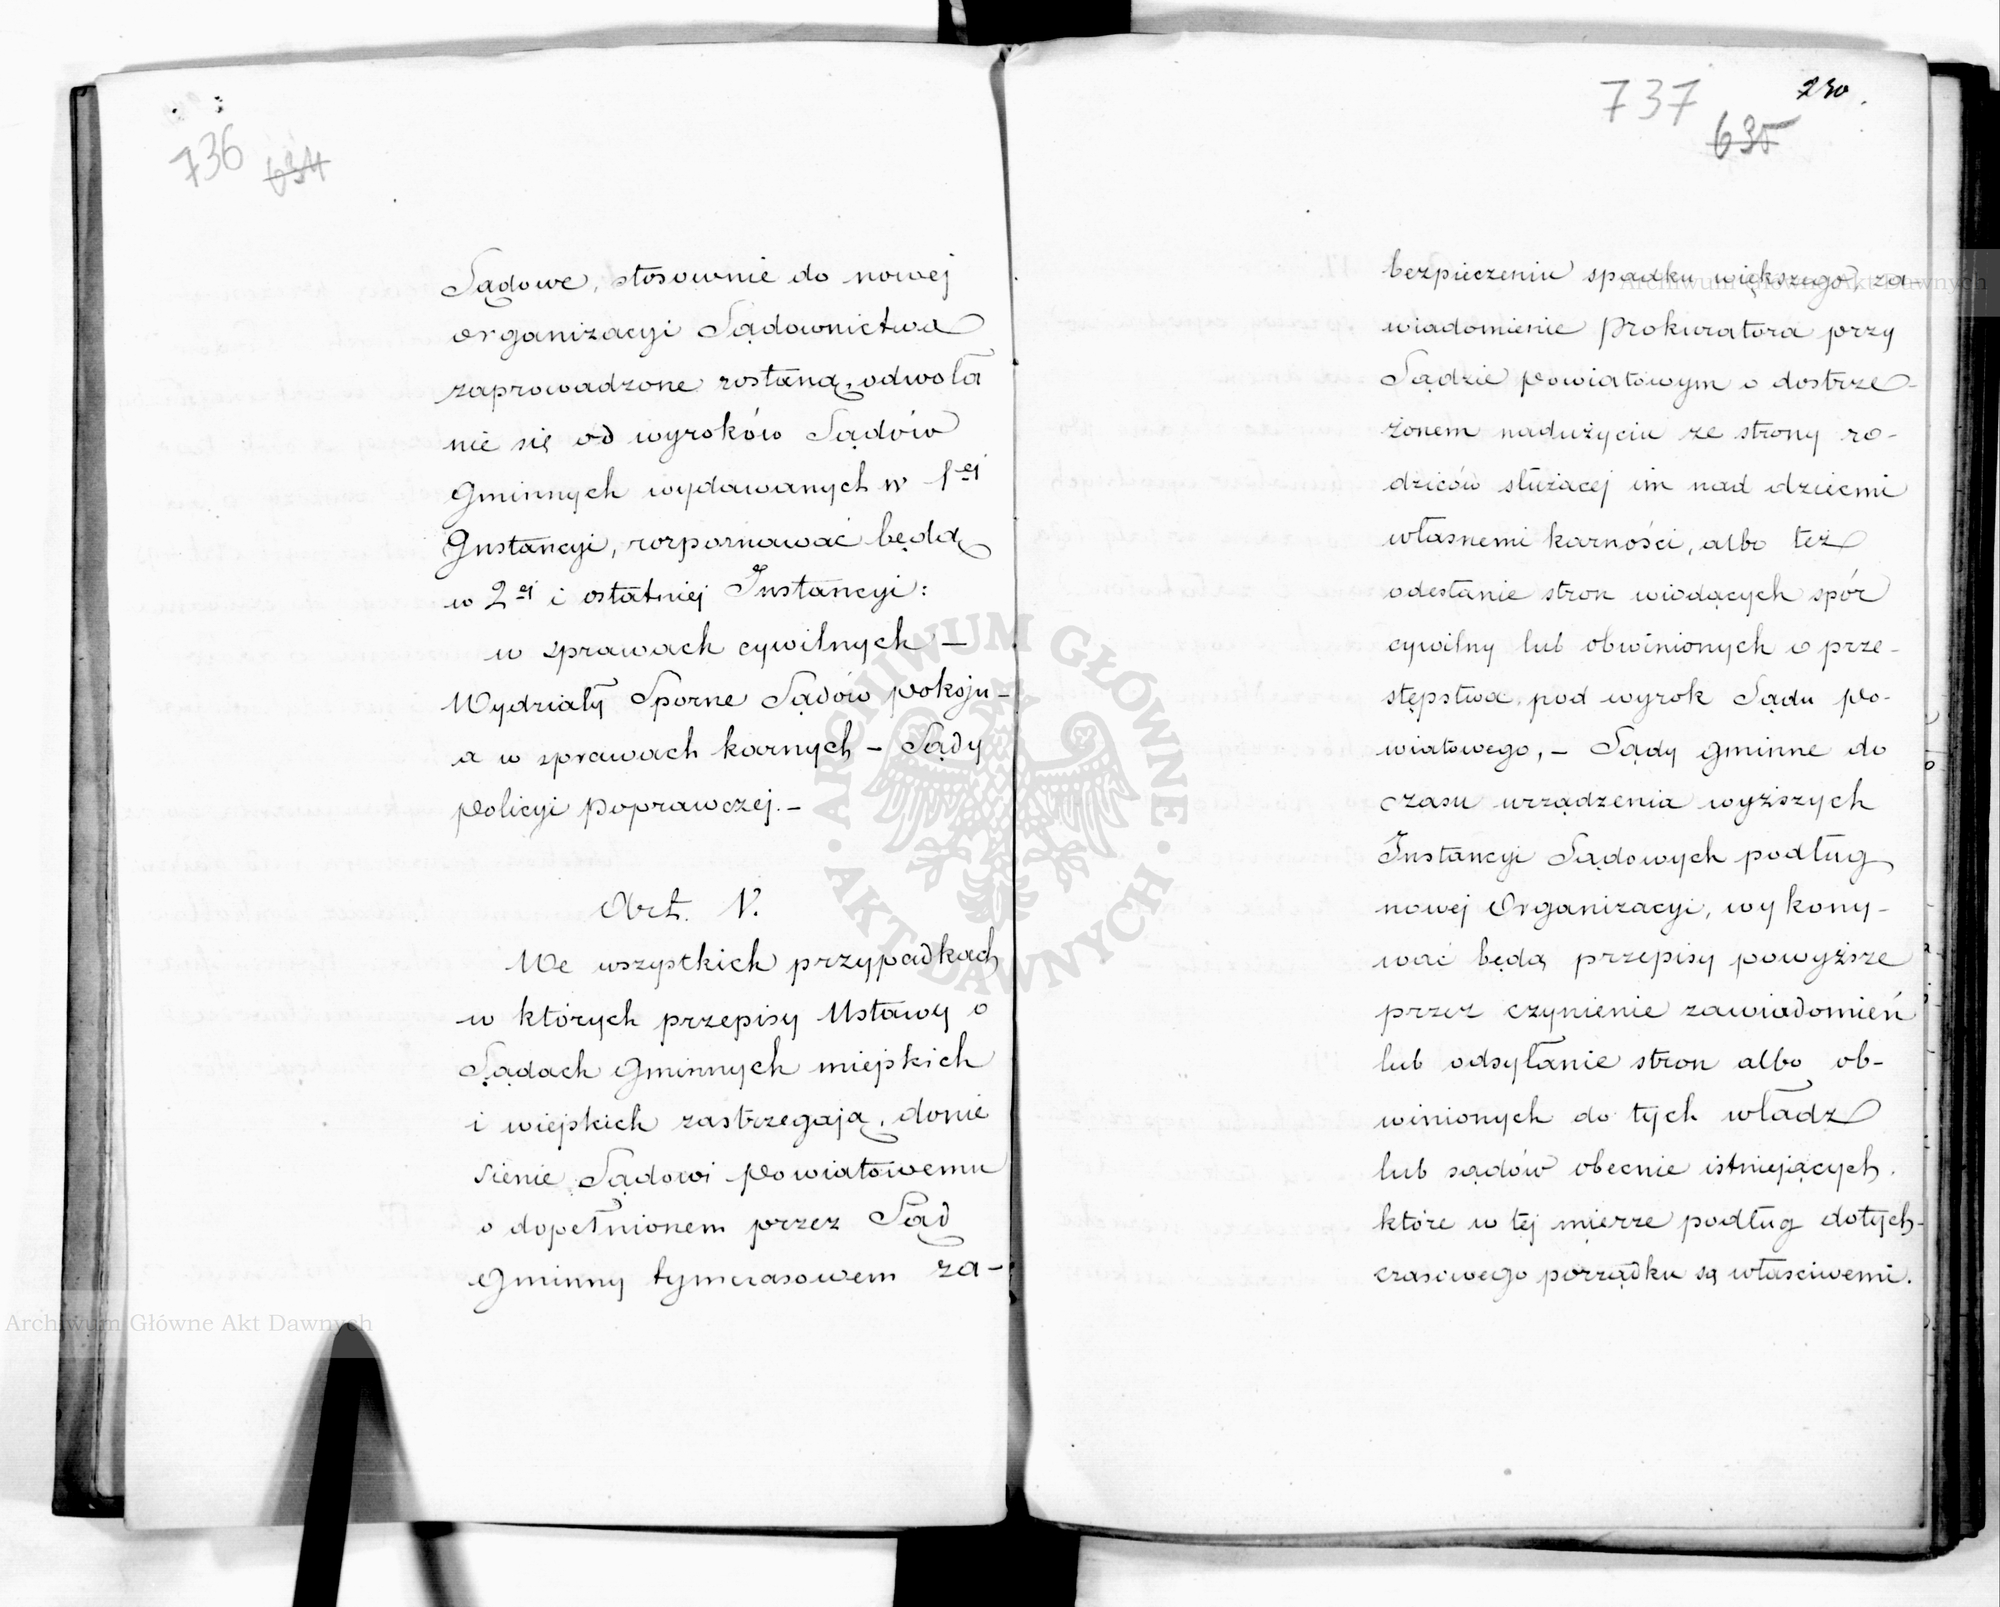 736 634
Sądowe, stosownie do nowej
organizacyi Sądownictwa
zaprowadzone zostaną, odwoła
nie się od wyroków Sądów
Gminnych wydawanych w 1ej
Instancyi, rozpoznawać będą
w 2ej i ostatniej Instancyi:
w sprawach cywilnych —
Wydziały Sporne Sądów Pokoju —
a w sprawach karnych — Sądy
Policyi Poprawczej. —
Art. V.
We wszystkich przypadkach
w których przepisy Ustawy o
Sądach Gminnych miejskich
i wiejskich zastrzegają, donie
sienie Sądowi Powiatowemu
o dopełnionem przez Sąd
Gminny tymczasowem za-
737 230.
635
bezpieczeniu spadku większego, za-
wiadomienie Prokuratora przy
Sądzie Powiatowym o dostrze-
żonem nadużyciu ze strony ro-
dziców służącej im nad dziećmi
własnemi karności, albo też
odesłanie stron wiodących spór
cywilny lub obwinionych o prze-
stępstwa, pod wyrok Sądu Po-
wiatowego, — Sądy gminne do
czasu urządzenia wyższych
Instancyi Sądowych podług
nowej Organizacyi, wykony-
wać będą przepisy powyższe
przez czynienie zawiadomień
lub odsyłanie stron albo ob-
winionych do tych władz
lub sądów obecnie istniejących.
które w tej mierze podług dotych-
czasowego porządku są właściwemi.
ARCHIWUM GŁÓWNE
AKT DAWNYCH
Archiwum Główne Akt Dawnych
Archiwum Główne Akt Dawnych